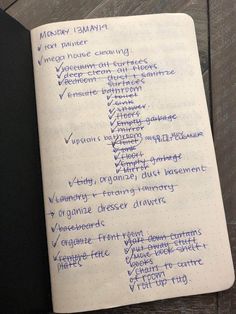 MONDAY 13 MAY 19.
✓ text painter
✓ mega house cleaning.
✓ vacuum all surfaces
✓ deep clean all floors
✓ Bedroom - dust + sanitize
surfaces
✓ Ensuite bathroom
✓ toilet
✓ sink
✓ shower
✓ floors
✓ Empty garbage
✓ mirror
✓ upstairs bathroom
✓ toilet
✓ sink
✓ floors
✓ Empty garbage
✓ mirror
✓ tidy, organize, dust basement
✓ laundry + folding laundry
→ organize dresser drawers
✓ baseboards
✓ organize front room
✓ take down curtains
✓ put away shift
✓ move book shelf +
books
✓ chairs to centre
of room
✓ roll up rug.
✓ remove
plates